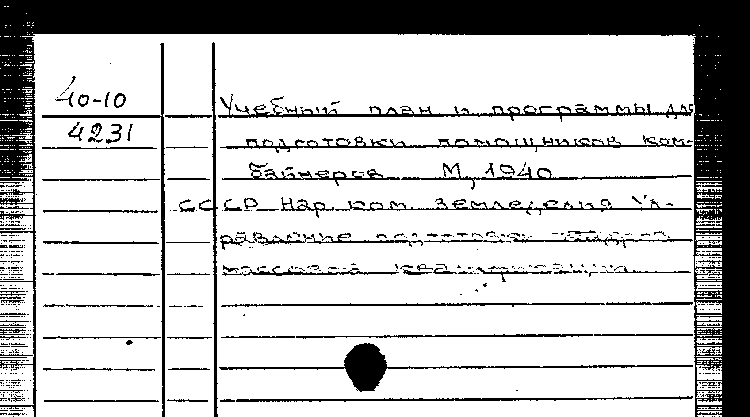 40-10
4231
Учебный план и программы для
подготовки помощников ком-
байнера М, 1940
СССР Нар. ком. земледелия Уп-
равление подготовки кадров
массовой квалификации